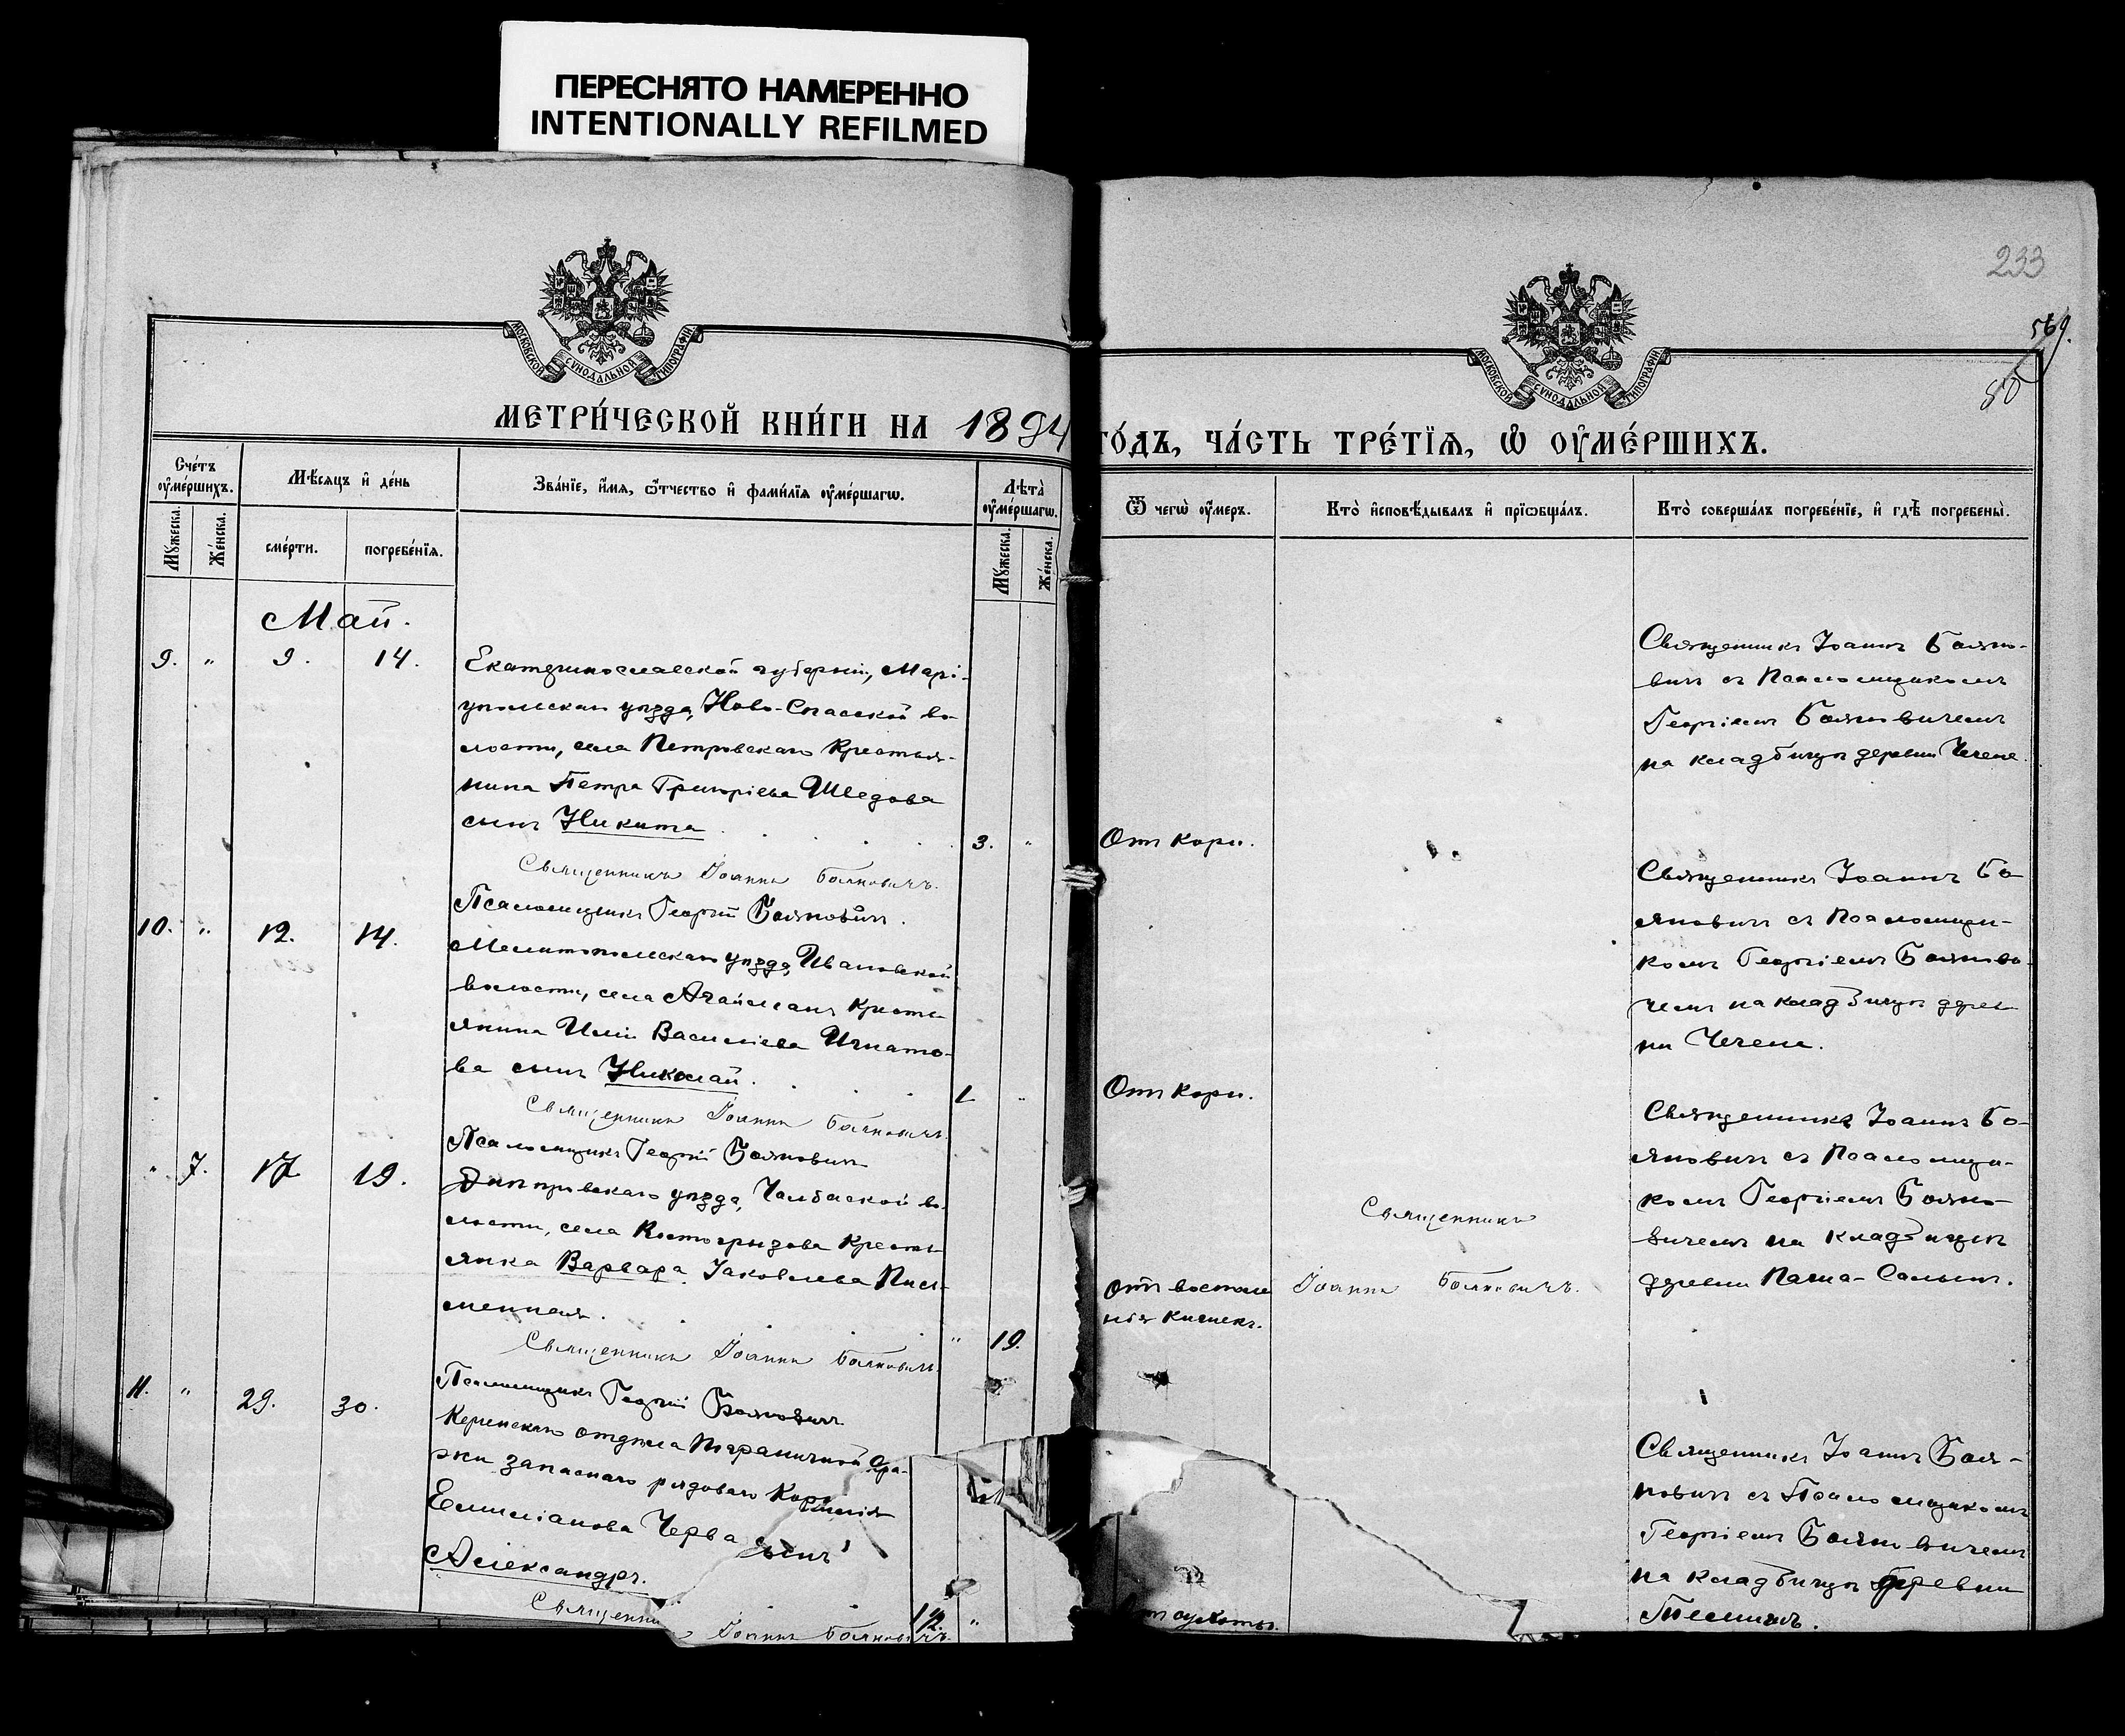 ПЕРЕСНЯТО НАМЕРЕННО
INTENTIONALLY REFILMED
233
569.
50
МОСКОВСКОЙ СѴНОДАЛЬНОЙ ТИПОГРАФІИ
МОСКОВСКОЙ СѴНОДАЛЬНОЙ ТИПОГРАФІИ
МЕТРИ́ЧЕСКОЙ КНИ́ГИ НА 1894
ГО́ДЪ, ЧА́СТЬ ТРЕ́ТЇѦ, Ѡ҆ ОУ҆МЕ́РШИХЪ.
Сче́тъ оу҆ме́ршихъ.
Мѣ́сѧцъ и҆ де́нь
Зва́нїе, и҆́мѧ, ѻ҆́тчество и҆ фами́лїѧ оу҆ме́ршагѡ.
Лѣ́та оу҆ме́ршагѡ.
Ѿ чегѡ̀ оу҆́меръ.
Кто̀ и҆сповѣ́дывалъ и҆ прїѡбща́лъ.
Кто̀ соверша́лъ погребе́нїе, и҆ гдѣ̀ погребены̀.
Мꙋ́жеска.
Же́нска.
сме́рти.
погребе́нїѧ.
Мꙋ́жеска.
Же́нска.
Май.
9. " 9. 14.
Екатеринославской губерніи, Марі-
упольскаго уѣзда, Ново-Спасской во-
лости, села Петровскаго Крестья-
нина Петра Григоріева Шведова
сынъ Никита
3. "
Отъ кори.
Священникъ Іоаннъ Бояно-
вичъ съ Псаломщикомъ
Георгіемъ Бояновичемъ
на кладбищѣ деревни Чегене.
Священникъ Іоаннъ Бояновичъ.
Псаломщикъ Георгій Бояновичъ.
10. " 12. 14.
Мелитопольскаго уѣзда, Ивановской
волости, села Агайманъ Кресть-
янина Иліи Василіева Игнато-
ва сынъ Николай.
1 "
Отъ кори.
Священникъ Іоаннъ Бо-
яновичъ съ Псаломщи-
комъ Георгіемъ Боянови-
чемъ на кладбищѣ дерев-
ни Чегене.
Священникъ Іоаннъ Бояновичъ.
Псаломщикъ Георгій Бояновичъ
" 7. 17 19.
Днѣпровскаго уѣзда, Чалбаской во-
лости, села Костогрызова Кресть-
янка Варвара Іаковлева Пись-
менная.
" 19.
Отъ воспале
нія кишекъ.
Священникъ
Іоаннъ Бояновичъ.
Священникъ Іоаннъ Бо-
яновичъ съ Псаломщи-
комъ Георгіемъ Бояно-
вичемъ на кладбищѣ
деревни Паша-Салынъ.
Священникъ Іоаннъ Бояновичъ.
Псаломщикъ Георгій Бояновичъ
11. " 29. 30.
Керченскаго отдѣла Пограничной Стра-
жи запаснаго рядоваго Корнилія
Емиліанова Черва сынъ
Александръ.
1/2. "
сухоты.
Священникъ Іоаннъ Боя-
новичъ съ Псаломщикомъ
Георгіемъ Бояновичемъ
на кладбищѣ деревни
Священникъ Іоаннъ Бояновичъ.